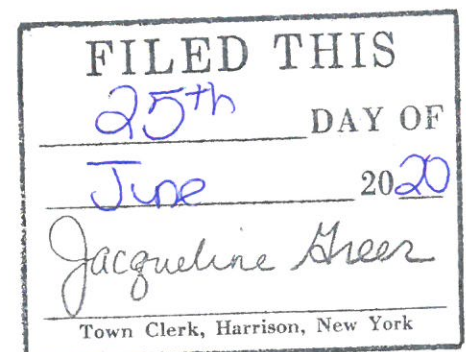 FILED THIS
25th DAY OF
June 2020
Jacqueline Greer
Town Clerk, Harrison, New York